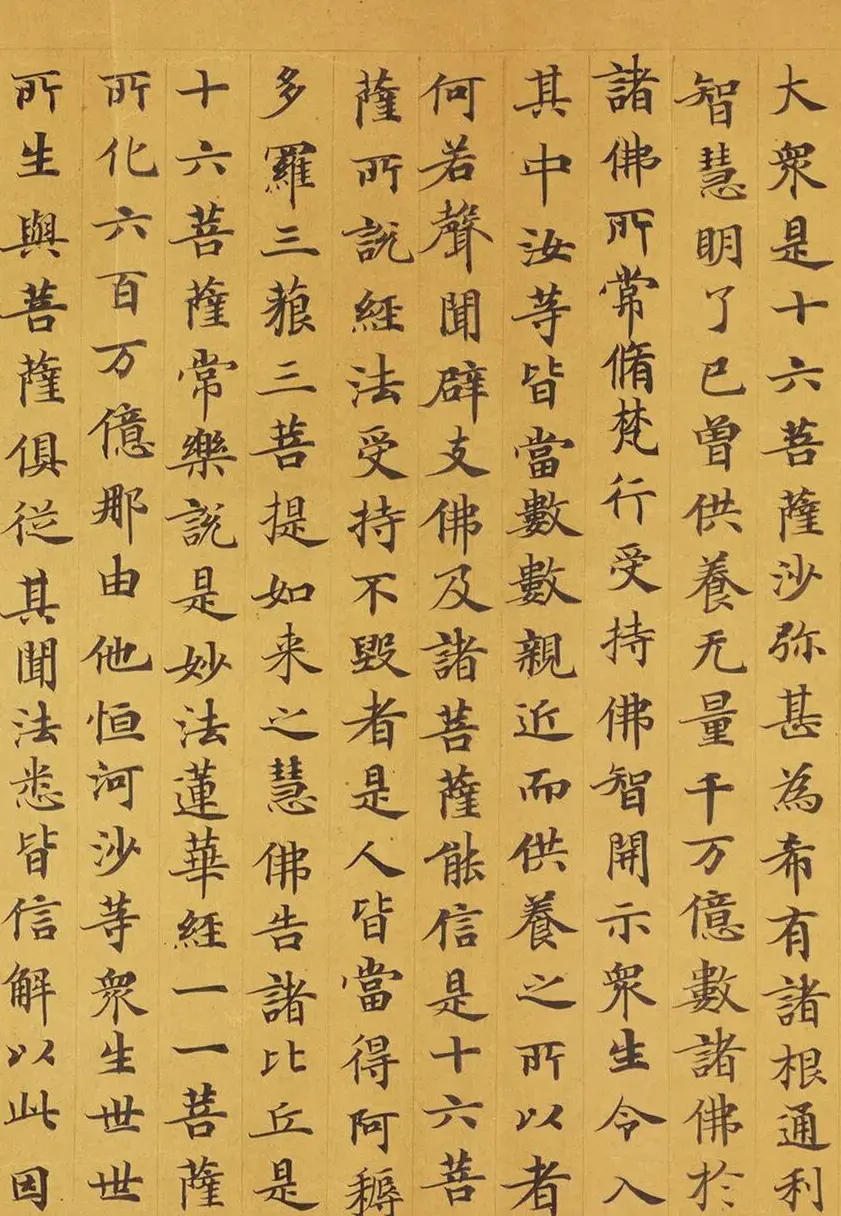 大衆是十六菩薩沙弥甚為希有諸根通利
智慧明了已曾供養无量千万億數諸佛於
諸佛所常脩梵行受持佛智開示衆生令入
其中汝等皆當數數親近而供養之所以者
何若聲聞辟支佛及諸菩薩能信是十六菩
薩所說經法受持不毀者是人皆當得阿耨
多羅三藐三菩提如来之慧佛告諸比丘是
十六菩薩常樂說是妙法蓮華經一一菩薩
所化六百万億那由他恒河沙等衆生世世
所生與菩薩俱從其聞法悉皆信解以此因